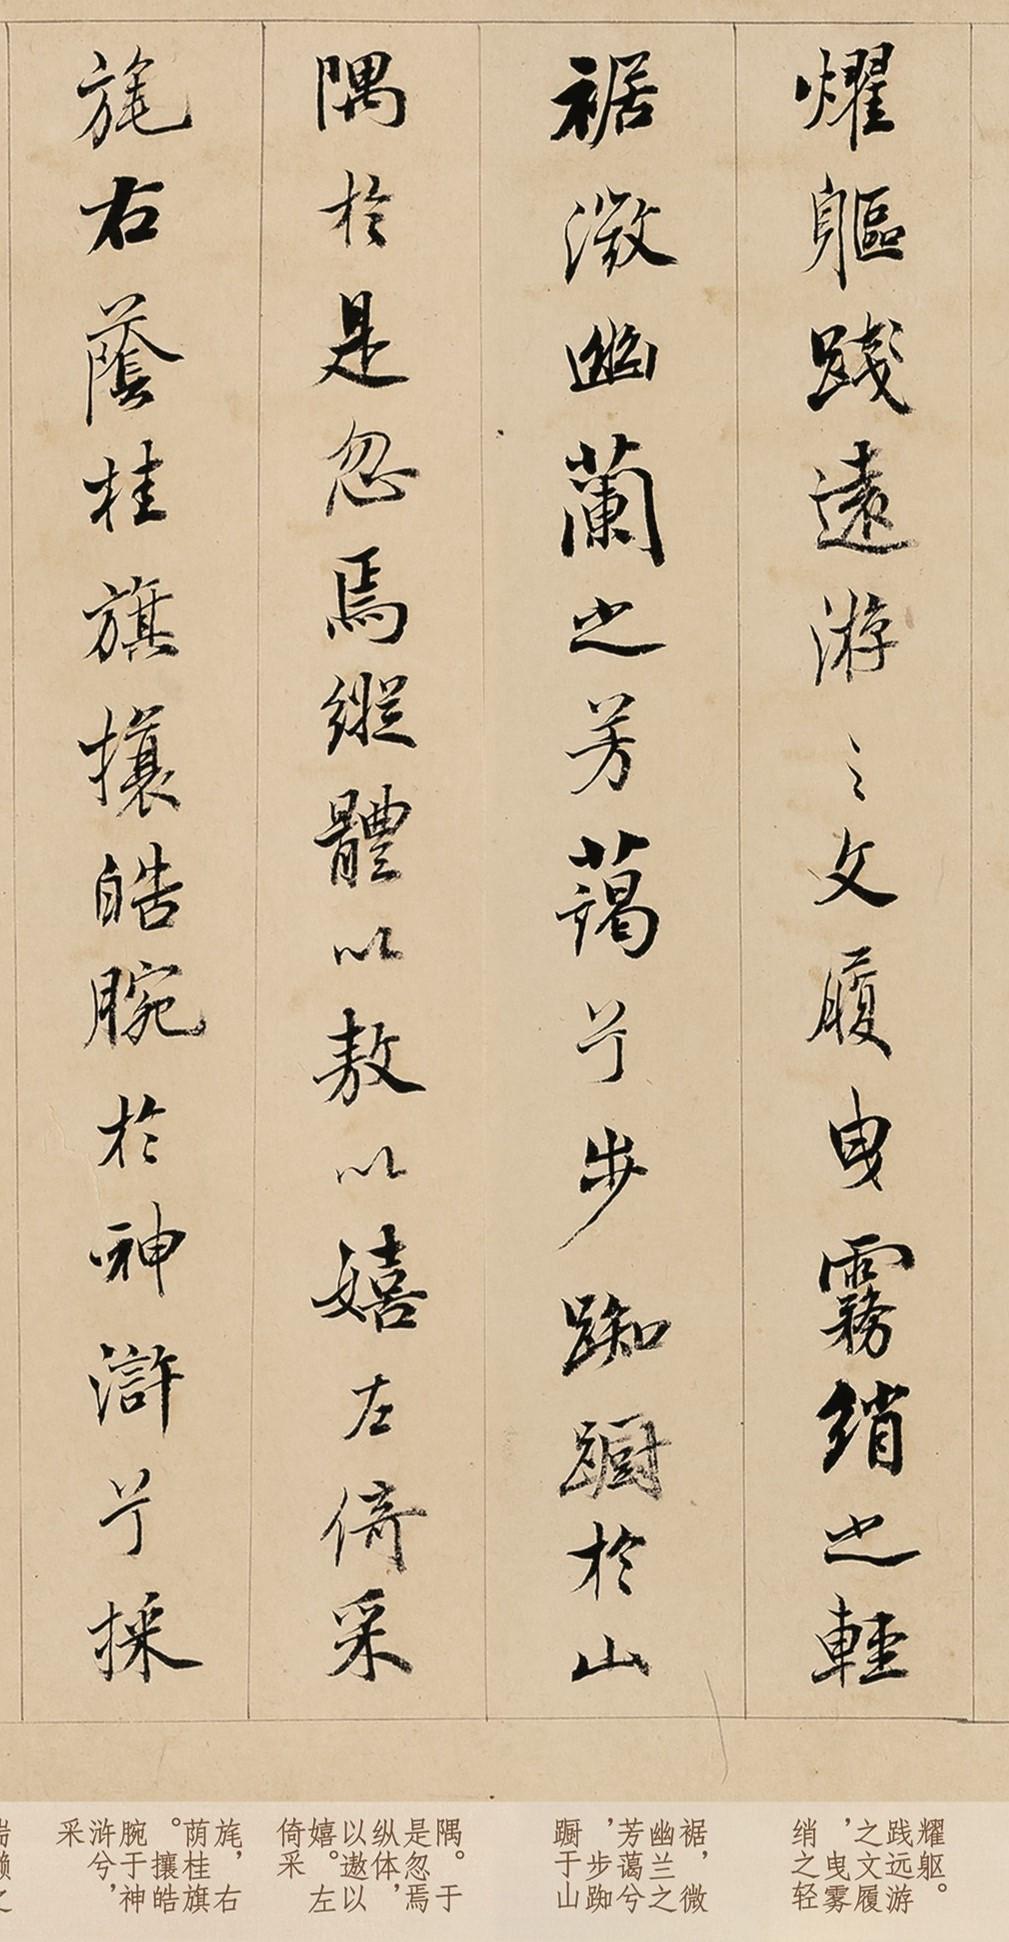 燿軀踐遠游之文履曳霧綃之輕
裾微幽蘭之芳藹兮步踟蹰於山
隅於是忽焉縱體以敖以嬉左倚采
旄右蔭桂旗攘皓腕於神滸兮採
耀躯。
践远游
之文履
，曳雾
绡之轻
裾，微
幽兰之
芳蔼兮
，步踟
蹰于山
隅。于
是忽焉
纵体，
以遨以
嬉。左
倚采
旄，右
荫桂旗
。攘皓
腕于神
浒兮，
采